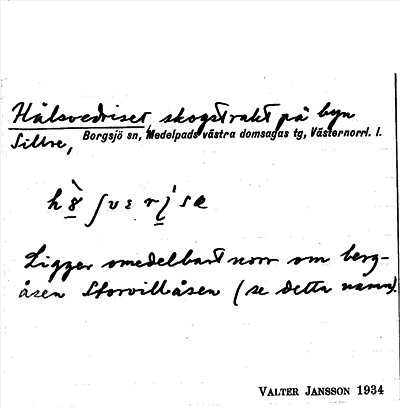 Hålsvedriset, skogstrakt på byn
Borgsjö sn, Medelpads västra domsagas tg, Västernorrl. l.
Sillre,
Ligger omedelbart norr om berg-
åsen Storvillåsen (se detta namn).
VALTER JANSSON 1934